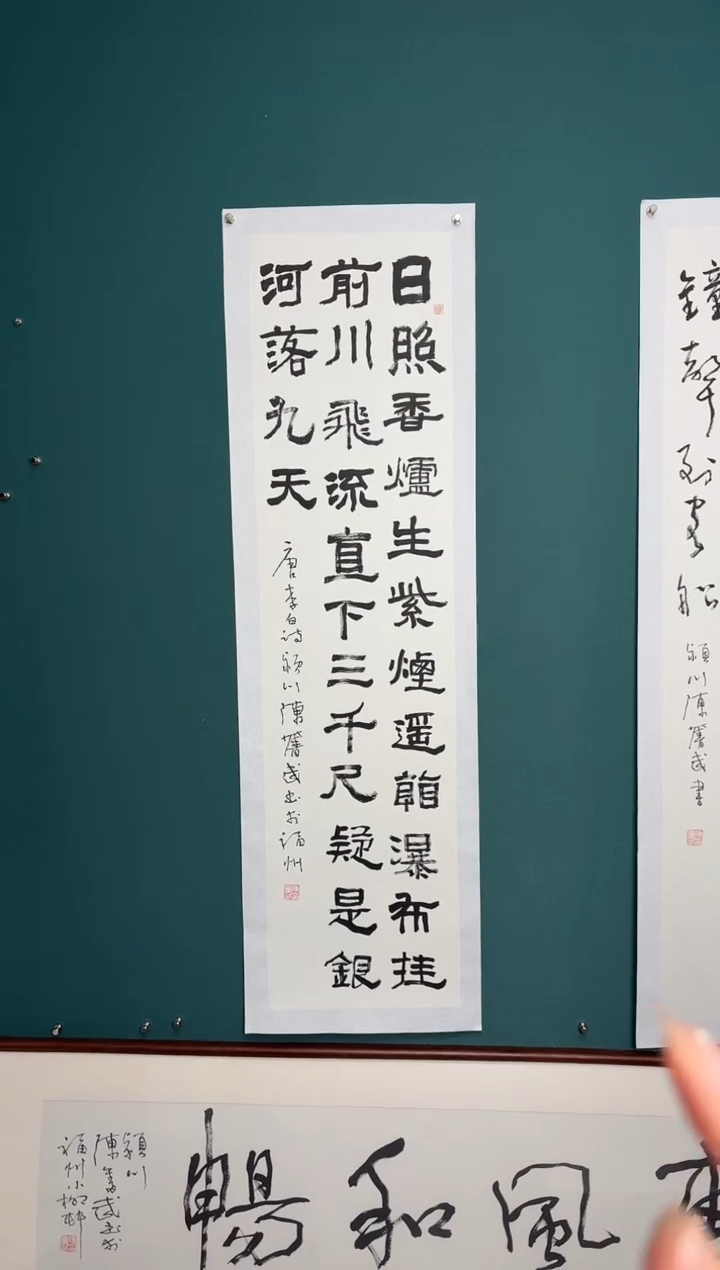 日照香爐生紫煙遥看瀑布挂
前川飛流直下三千尺疑是銀
河落九天
唐李白诗潁川陳奮武书於福州
鐘聲到客船
潁川陳奮武書
風和暢
潁川
陳奮武书於
福州小柳邨